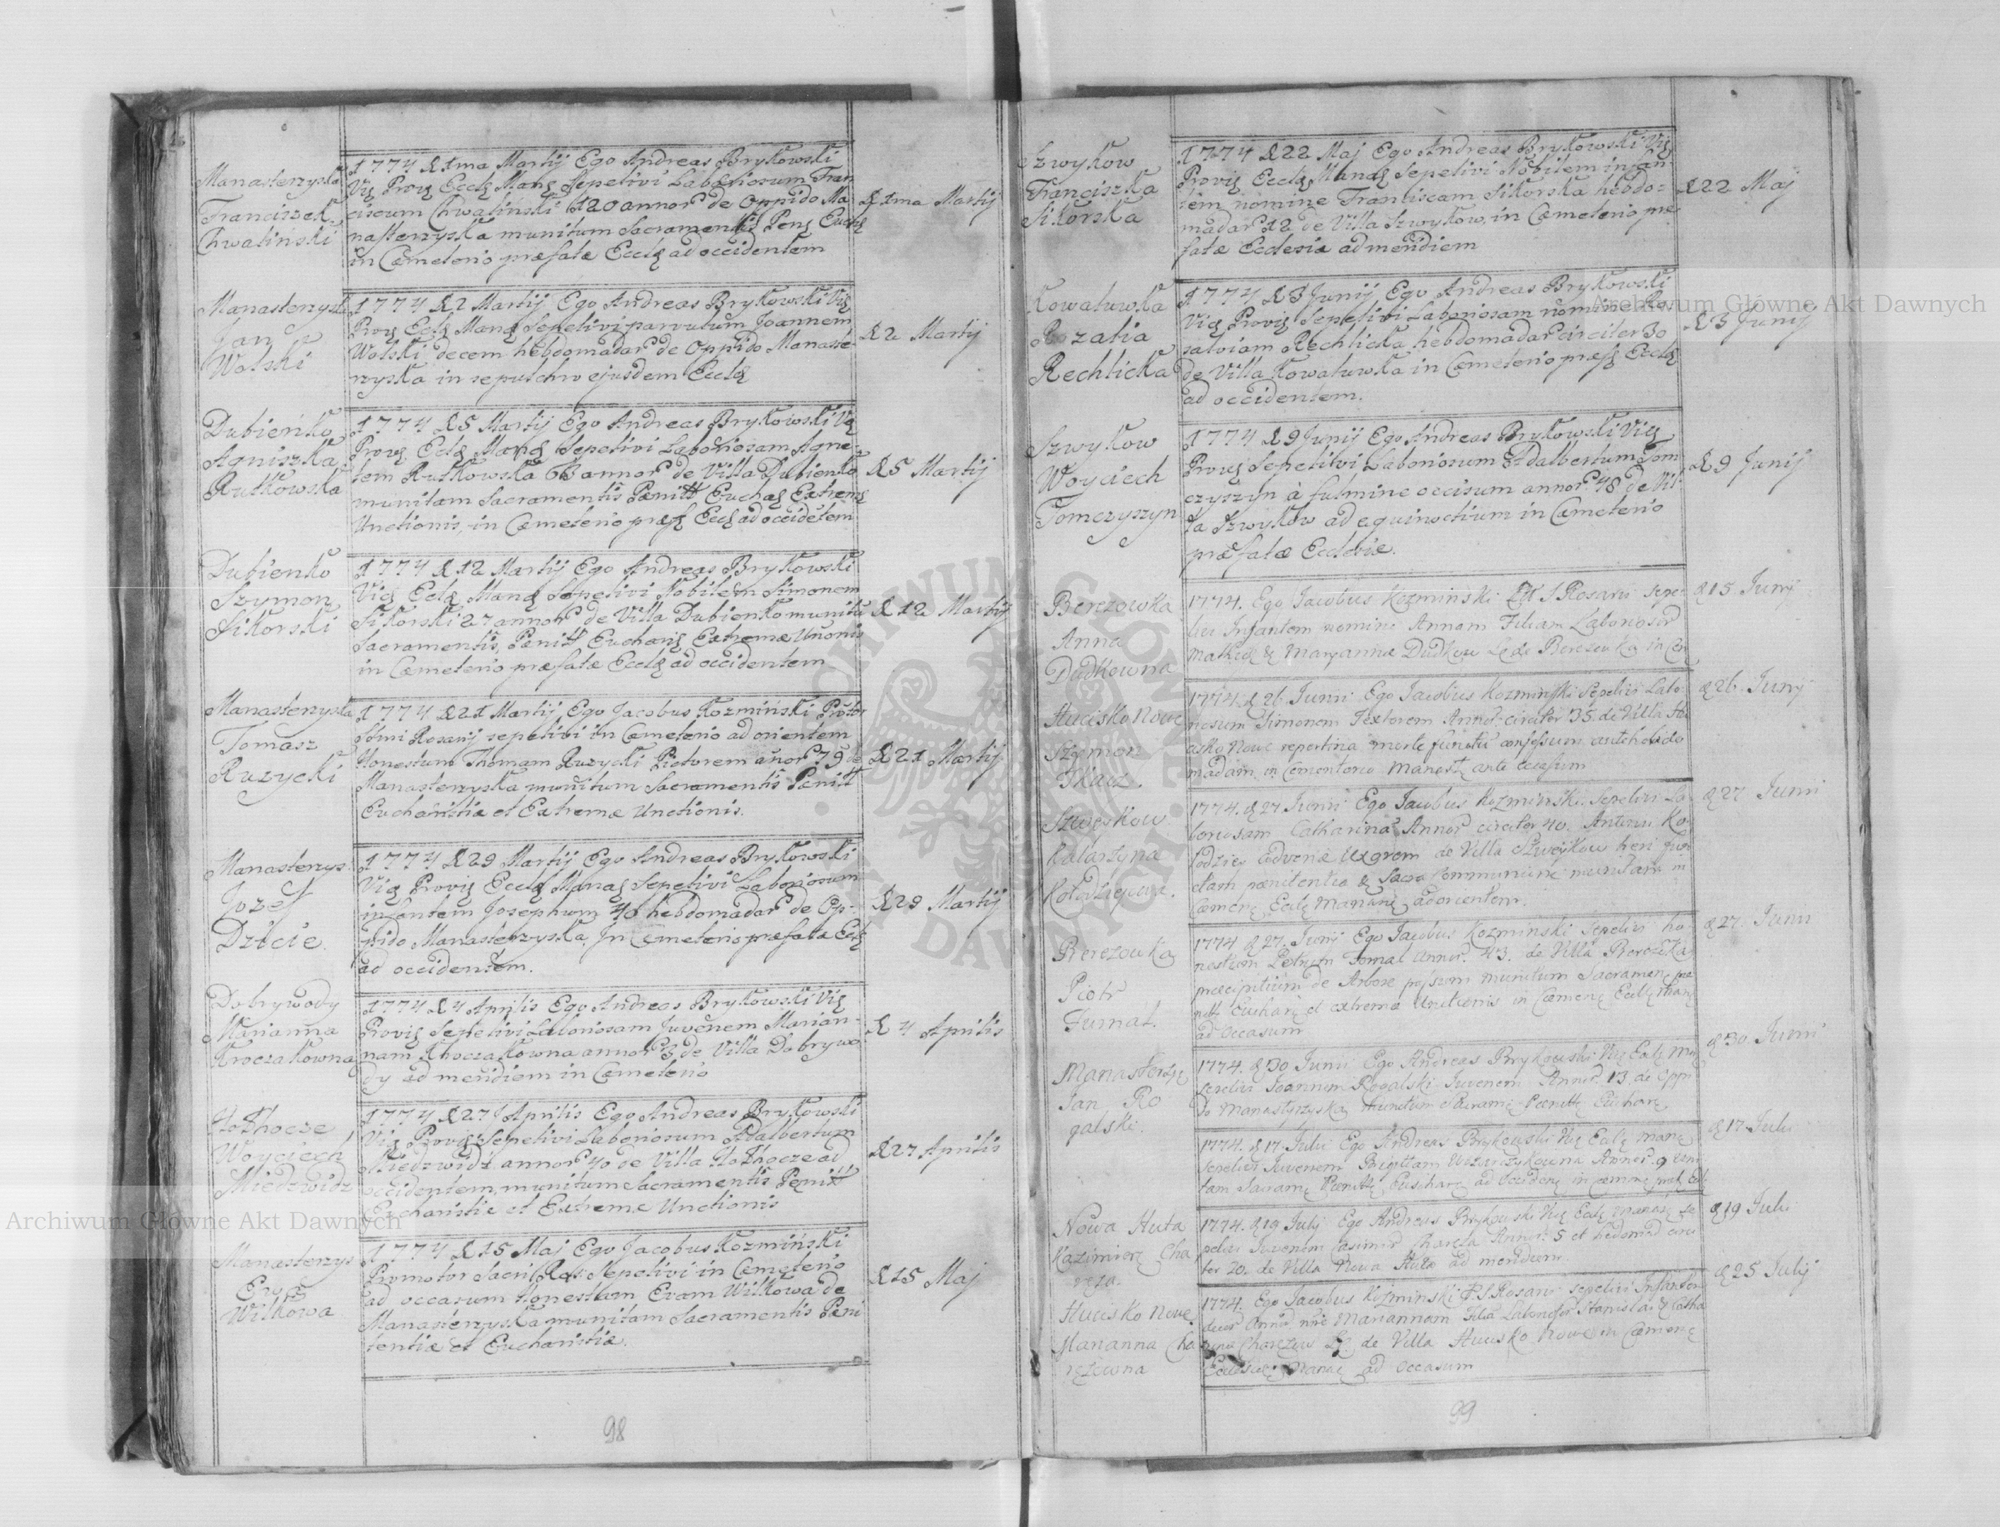 Manasterzyska
Franciszek
Chwaliński
1774 d 1ma Martij Ego Andreas Brykowski
Vic Provis Eccle Manas Sepelivi Laboriosum Fran
ciscum Chwaliński 120 annor de Oppido Ma
nasterzyska munitum Sacramentis Peni Euch
in Cæmeterio præfatæ Eccle ad occidentem
d 1ma Martij
Manasterzyska
Jan
Wolski
1774 d 2 Martij Ego Andreas Brykowski Vic
Provis Eccle Manas Sepelivi parvulum Joannem
Wolski decem hebdomadar de Oppido Manaste
rzyska in sepulchro ejusdem Eccle
d 2 Martij
Dubieńko
Agniszka
Rutkowska
1774 d 5 Martij Ego Andreas Brykowski Vic
Provis Eccle Manas Sepelivi Laboriosam Agne
tem Rutkowska 68 annor de Villa Dubienko
munitam Sacramentis Pænitt Euchas Extreme
Unctionis, in Cæmeterio præf Eccle ad occidetem
d 5 Martij
Dubienko
Szymon
Sikorski
1774 d 12 Martij Ego Andreas Brykowski
Vic Eccle Manas Sepelivi Nobilem Simonem
Sikorski 27 annor de Villa Dubienko munitu
Sacramentis, Pænitt Eucharis Extremæ Unonis
in Cæmeterio præfatæ Eccle ad occidentem
d 12 Martij
Manasterzyska
Tomasz
Ruzycki
1774 d 21 Martij Ego Jacobus Kozmiński Promo
Rosarij sepelivi in Cæmeterio ad orientem
Honestum Thomam Ruzycki Pictorem anor 79 de
Manasterzyska munitum Sacramentis Pænitt
Eucharistiæ et Extremæ Unctionis.
d 21 Martij
Manasterzys
Jozef
Dziecie
1774 d 29 Martij Ego Andreas Brykowski
Vic Provis Eccle Manas Sepelivi Laboriosum
infantem Josephum 40 hebdomadar de Op-
pido Manasterzyska In Cæmeterio præfatæ Eccle
ad occidentem.
d 29 Martij
Dobrywody
Marianna
Kroczakowna
1774 d 4 Aprilis Ego Andreas Brykowski Vic
Provis Sepelivi Laboriosam Juvenem Marian-
nam Kroczakowna annor 8 de Villa Dobrywo
dy ad meridiem in Cæmeterio
d 4 Aprilis
Hołhocze
Woyciech
Miedzwidz
1774 d 27 Aprilis Ego Andreas Brykowski
Vic Provis Sepelivi Laboriosum Adalbertum
Miedzwidz annor 40 de Villa Hołhocze ad
occidentem, munitum Sacramentis Pænitt
Eucharistiæ et Extremæ Unctionis
d 27 Aprilis
Manasterzys
Ewa
Wilkowa
1774 d 15 Maj Ego Jacobus Kozmiński
Promotor Sacri Ros: Sepelivi in Cæmeterio
ad occasum Honestam Evam Wilkowa de
Manasterzyska munitam Sacramentis Pæni
tentiæ et Eucharistiæ.
d 15 Maj
98
Szwykow
Franciszka
Sikorska
1774 d 22 Maj Ego Andreas Brykowski Vic
Provis Eccle Manas Sepelivi Nobilem infan-
tem nomine Franciscam Sikorska hebdo-
madar 12 de Villa Szwykow, in Cæmeterio præ
fatæ Ecclesiæ ad meridiem
d 22 Maj
Kowalowka
Rozalia
Rechlicka
1774 d 3 Junij Ego Andreas Brykowski
Vic Provis Sepelivi Laboriosam nomine Ro
saliam Rechlicka hebdomadar circiter 30
de Villa Kowaluwka in Cæmeterio præf Eccle
ad occidentem.
d 3 Junij
Szwykow
Woyciech
Tomczyszyn
1774 d 9 Junij Ego Andreas Brykowski Vic
Provis Sepelivi Laboriosum Adalbertum Tom
czyszyn à fulmine occisum annor 48 de Vil
la Szwykow ad equinoctium in Cæmeterio
præfatæ Ecclesiæ.
d 9 Junij
Berezowka
Anna
Dudkowna
1774. Ego Jacobus Kozminski S Rosarii sepe
livi Infantem nomine Annam Filiam Laboriosor
& Maryannæ Dudkow de Berezowka in
d 15. Junij
Hucisko Nowe
Szymon
Tkacz.
1774. d 26 Junii Ego Jacobus Kozminski Sepelivi Labo
riosum Simonem Textorem Annor circiter 35 de Villa Hu
cisko Nowe repentina morte functu confessum ante hebdo
madam in Cæmeterio Manast
d 26. Junij
Szwejkow
Katarzyna
Kołodziejowa.
1774. d 27 Junii Ego Jacobus Kozminski Sepelivi La
boriosam Catharina Annor circiter 40. Antonii Ko
łodziey advenæ Uxorem de Villa Szwejkow heri
pænitentia & Sacra Communione munitam in
Cæmete Eccle Manas ad orientem.
d 27 Junii
Berezowka
Piotr
Furnal.
1774 d 27. Junij Ego Jacobus Kozminski Sepelivi ho
nestum Petrum Annor 43. de Villa Berozka
præcipitium de Arbore munitum Sacramen
Euchar et extrema Unctionis in Cæmene Eccle Manas
ad occasum
d 27. Junii
Manasterzy
Jan Ro
galski.
1774. d 30 Junii Ego Andreas Brykowski Vic Eccle Ma
sepelivi Joannem Rogalski Juvenem Annor 13 de Oppi
do Manastyrzyska Munitum Sacrame Pænitt Euchare
d 30 Junii
1774. d 17 Julii Ego Andreas Brykowski Vic Eccle Mane
sepelivi Juvenem Brigittam Annor 9
tam Sacrame Pænitt Euchare ad Occidene in cæmene præf Eccl
d 17 Julii
Nowa Huta
Kazimierz Cha
ręza.
1774. d 19 Julij Ego Andreas Brykowski Vic Eccle Manas se
pelivi Juvenem Casimir Charęza Annor 5 et hebdomad circi
ter 20. de Villa Nova Huta ad meridiem
d 19 Julii
Hucisko Nowe
Marianna Cha
ręzewna
1774. Ego Jacobus Kozminski P S Rosarii Sepelivi Infantem
Mariannam Filia Laborios Stanislai & Catha
rina de Villa Hucisko Nowe in Cæmene
Ecclesiæ Manas ad Occasum
d 25 Julij
99
Archiwum Główne Akt Dawnych
Archiwum Główne Akt Dawnych
ARCHIWUM GŁÓWNE AKT DAWNYCH